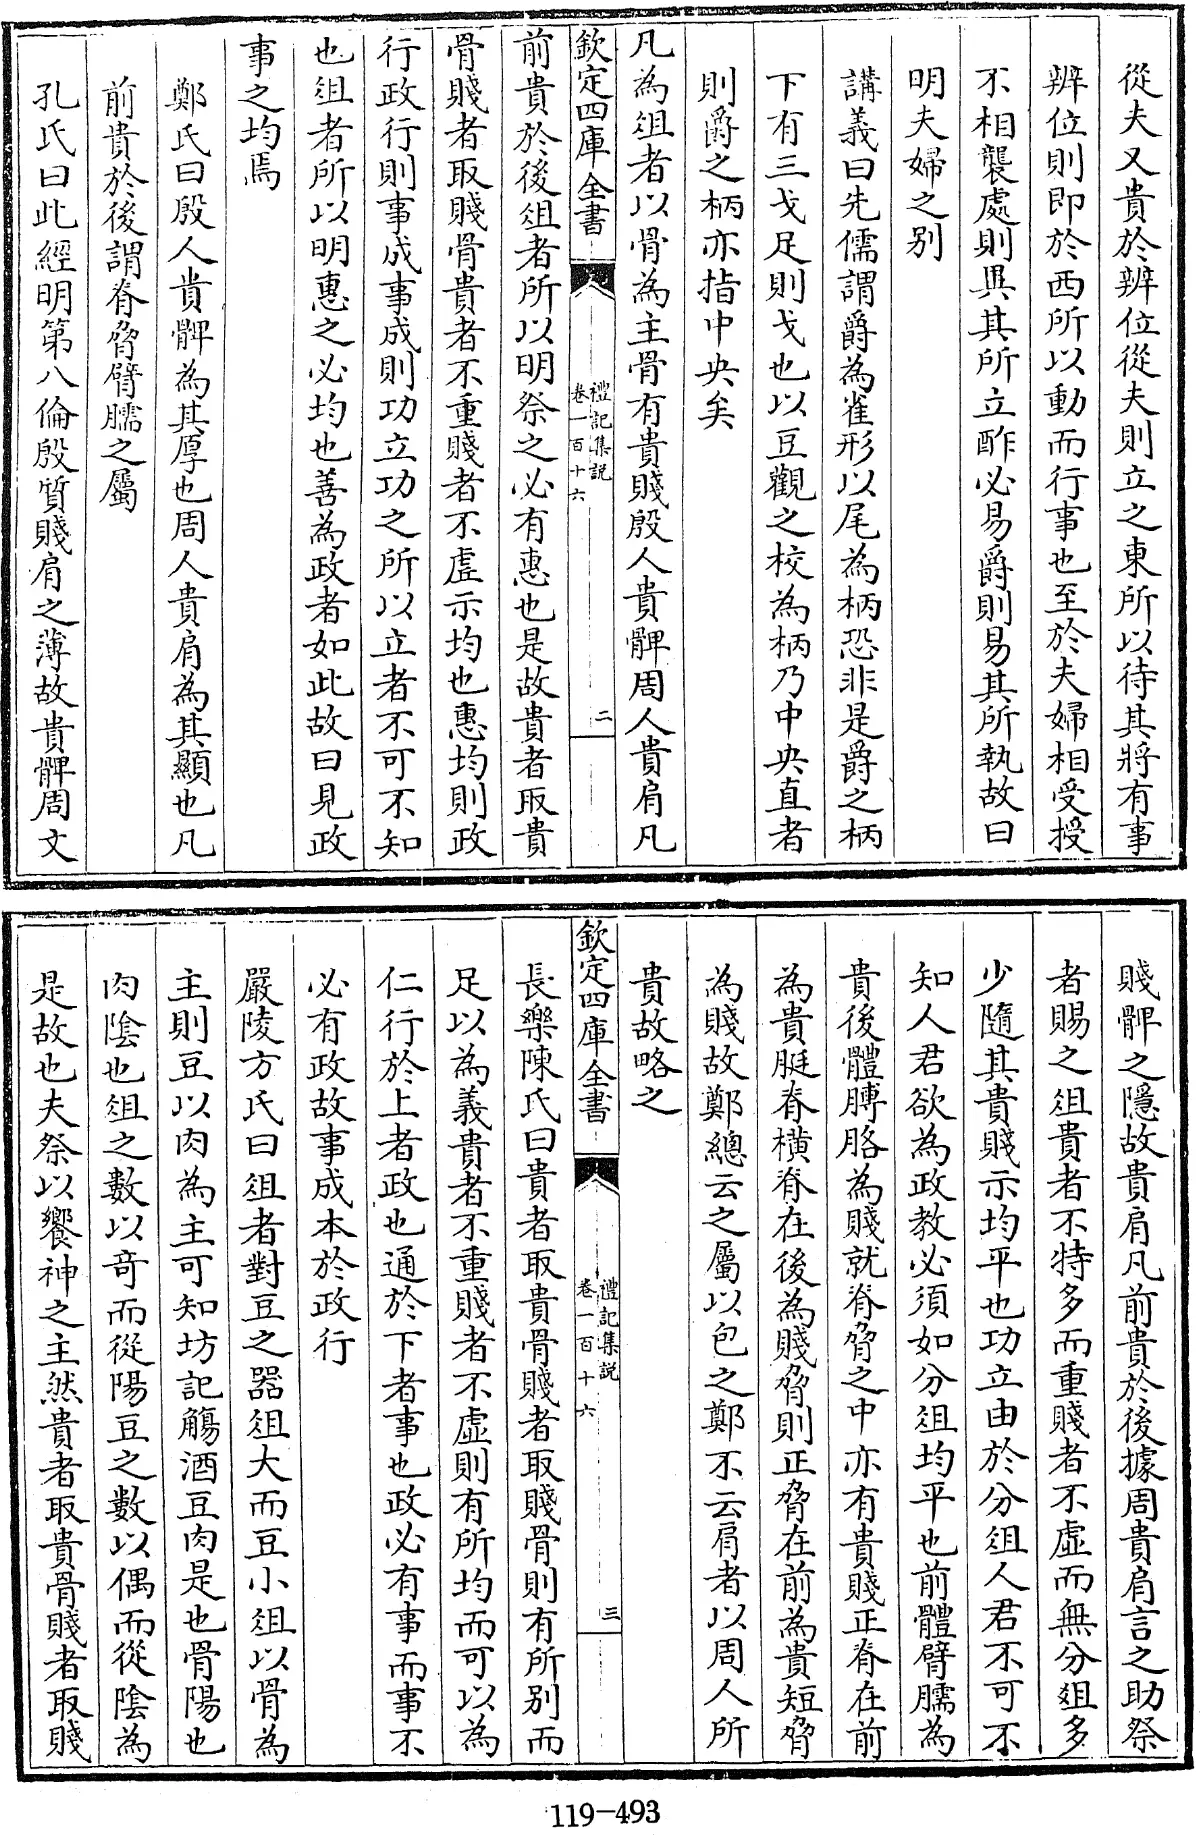 從夫又貴於辨位從夫則立之東所以待其將有事
辨位則即於西所以動而行事也至於夫婦相受授
不相襲處則異其所立酢必易爵則易其所執故曰
明夫婦之别
講義曰先儒謂爵為雀形以尾為柄恐非是爵之柄
下有三戈足則戈也以豆觀之校為柄乃中央直者
則爵之柄亦指中央矣
凡為俎者以骨為主骨有貴賤殷人貴髀周人貴肩凡
欽定四庫全書
禮記集説
卷一百十六
二
前貴於後俎者所以明祭之必有惠也是故貴者取貴
骨賤者取賤骨貴者不重賤者不虚示均也惠均則政
行政行則事成事成則功立功之所以立者不可不知
也俎者所以明惠之必均也善為政者如此故曰見政
事之均焉
鄭氏曰殷人貴髀為其厚也周人貴肩為其顯也凡
前貴於後謂脊脅臂臑之屬
孔氏曰此經明第八倫殷質賤肩之薄故貴髀周文
賤髀之隱故貴肩凡前貴於後據周貴肩言之助祭
者賜之俎貴者不特多而重賤者不虚而無分俎多
少隨其貴賤示均平也功立由於分俎人君不可不
知人君欲為政教必須如分俎均平也前體臂臑為
貴後體膊胳為賤就脊脅之中亦有貴賤正脊在前
為貴脡脊橫脊在後為賤脅則正脅在前為貴短脅
為賤故鄭總云之屬以包之鄭不云肩者以周人所
貴故略之
欽定四庫全書
禮記集説
卷一百十六
三
長樂陳氏曰貴者取貴骨賤者取賤骨則有所别而
足以為義貴者不重賤者不虚則有所均而可以為
仁行於上者政也通於下者事也政必有事而事不
必有政故事成本於政行
嚴陵方氏曰俎者對豆之器俎大而豆小俎以骨為
主則豆以肉為主可知坊記觴酒豆肉是也骨陽也
肉陰也俎之數以奇而從陽豆之數以偶而從陰為
是故也夫祭以饗神之主然貴者取貴骨賤者取賤
119-493